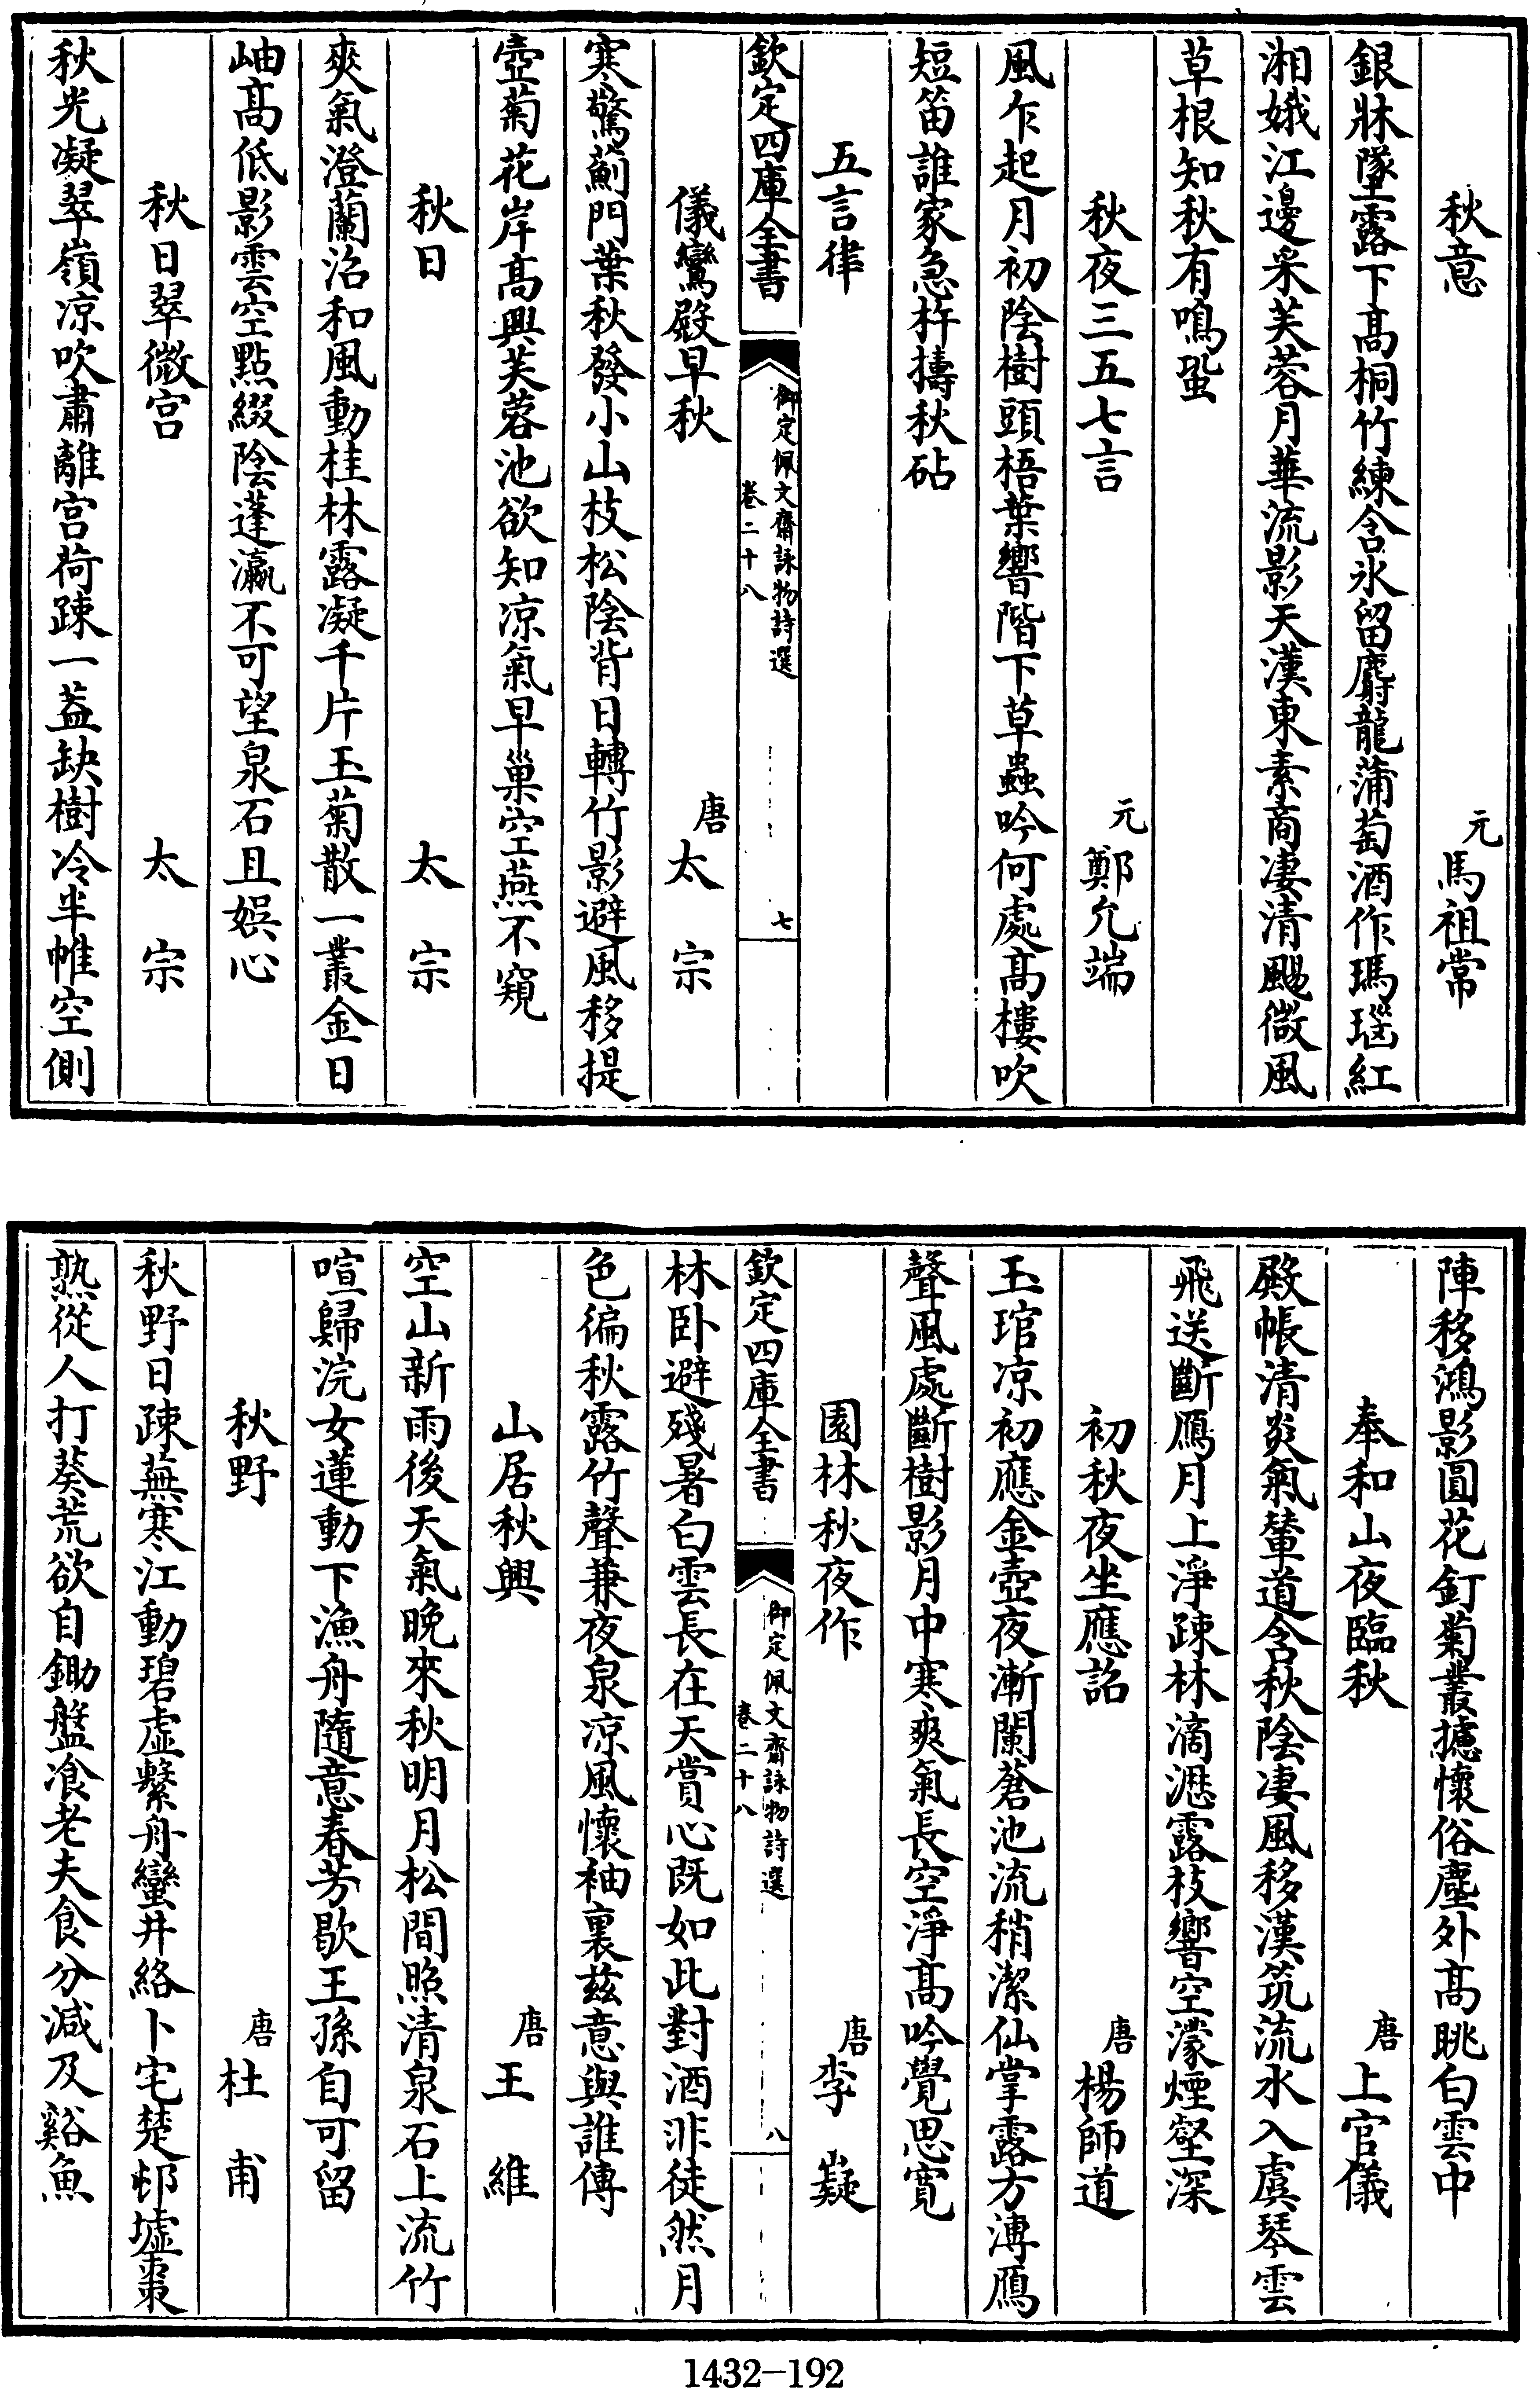 秋意 元馬祖常
銀牀墜露下高桐竹練含氷留麝龍蒲萄酒作瑪瑙紅
湘娥江邊采芙蓉月華流影天漢東素商凄清颺微風
草根知秋有鳴蛩
秋夜三五七言 元鄭允端
風乍起月初陰樹頭梧葉響階下草蟲吟何處髙樓吹
短笛誰家急杵擣秋砧
五言律
欽定四庫全書 御定佩文齋詠物詩選 卷二十八 七
儀鸞殿早秋 唐太宗
寒驚薊門葉秋發小山枝松陰背日轉竹影避風移提
壺菊花岸高興芙蓉池欲知凉氣早巢空燕不窺
秋日 太宗
爽氣澄蘭沼和風動桂林露凝千片玉菊散一叢金日
岫髙低影雲空點綴陰蓬瀛不可望泉石且娯心
秋日翠微宫 太宗
秋光凝翠嶺凉吹肅離宫荷踈一葢缺樹冷半帷空側
陣移鴻影圓花釘菊叢攄懷俗塵外髙眺白雲中
奉和山夜臨秋 唐上官儀
殿帳清炎氣輦道含秋陰凄風移漢筑流水入虞琴雲
飛送斷鴈月上淨踈林滴瀝露枝響空濛煙壑深
初秋夜坐應詔 唐楊師道
玉琯凉初應金壺夜漸闌蒼池流稍潔仙掌露方漙鴈
聲風處斷樹影月中寒爽氣長空淨髙吟覺思寛
園林秋夜作 唐李嶷
林卧避殘暑白雲長在天賞心既如此對酒非徒然月
色徧秋露竹聲兼夜泉凉風懷袖裏兹意與誰傳
欽定四庫全書 御定佩文齋詠物詩選 卷二十八 八
山居秋興 唐王維
空山新雨後天氣晚來秋明月松間照清泉石上流竹
喧歸浣女蓮動下漁舟隨意春芳歇王孫自可留
秋野 唐杜甫
秋野日踈蕪寒江動碧虚繫舟蠻井絡卜宅楚邨墟棗
熟從人打葵荒欲自鋤盤飡老夫食分減及谿魚
1432-192